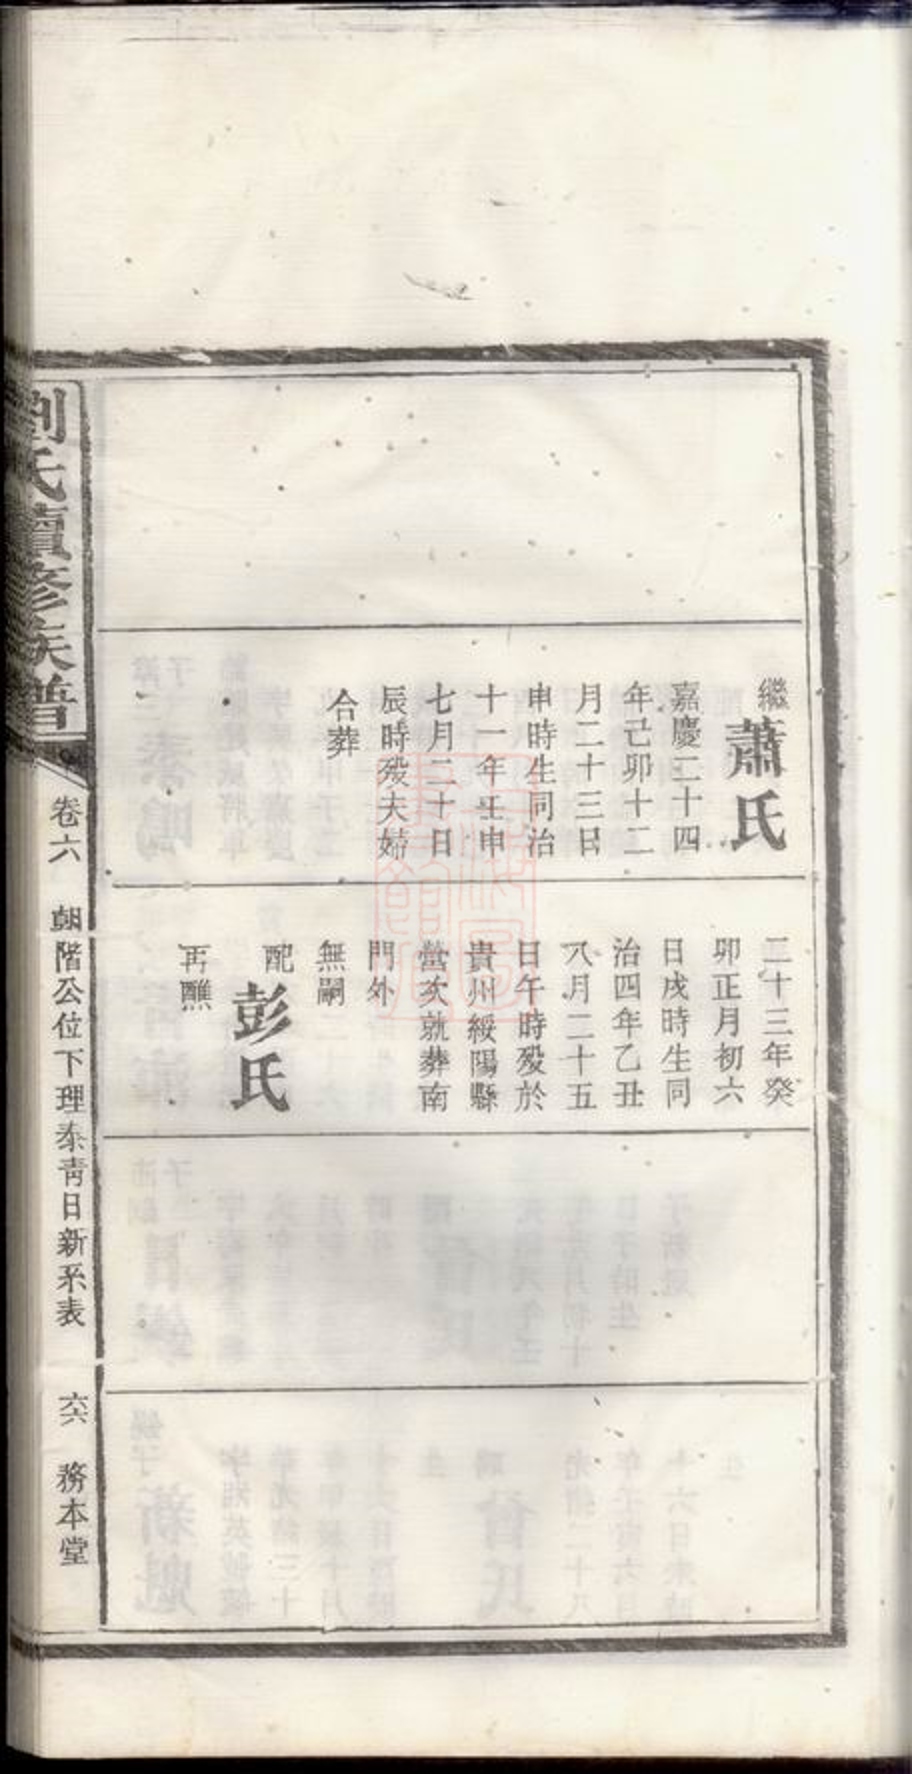 繼蕭氏
嘉慶二十四
年己卯十二
月二十三日
申時生同治
十一年壬申
七月二十日
辰時歿夫婦
合葬
二十三年癸
卯正月初六
日戌時生同
治四年乙丑
八月二十五
日午時歿於
貴州綏陽縣
營次就葬南
門外
無嗣
配彭氏
再醮
劉氏續修族譜
卷六
朝階公位下理泰青日新系表
六
務本堂